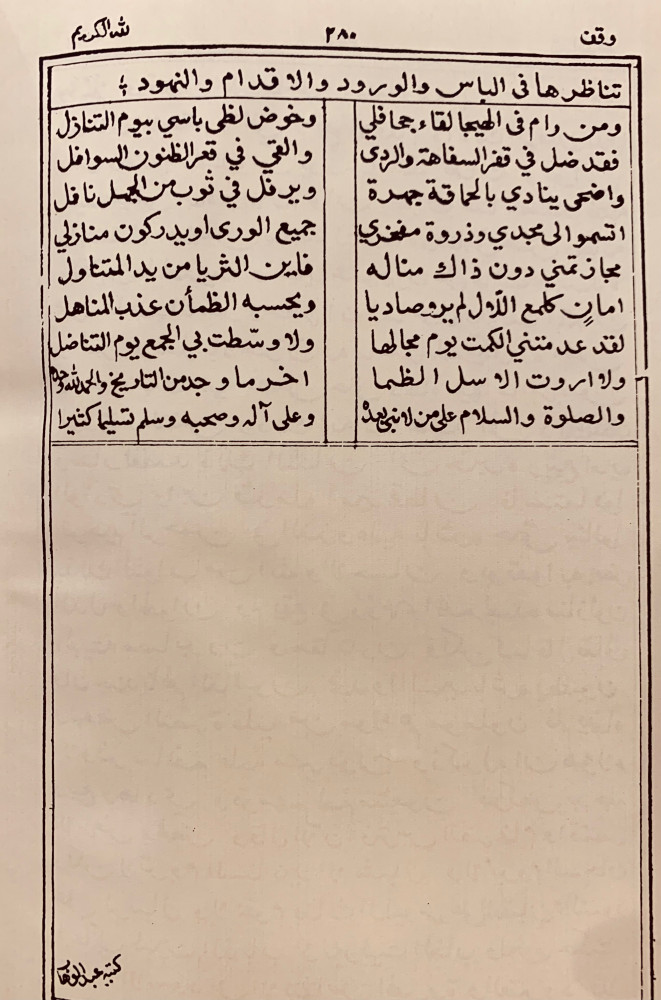 وقف ٢٨٠ لله الكريم
تناظرها في الباس والورود والاقدام والنهود ؛
ومن رام في الهيجا لقاء جحافلي وخوض لظى باسي بيوم التنازل
فقد ضل في قفر السفاهة والردى والقي في قعر الظنون السوافل
واضحى ينادي بالحماقة جهرة ويرفل في ثوب من الجهل نافل
اتسموا الى مجدي وذروة مفخري جميع الورى اويدركون منازلي
مجاز تمني دون ذاك مناله فاين الثريا من يد المتناول
امانٍ كلمع الآل لم يرو صاديا ويحسبه الظمأن عذب المناهل
لقد عدمتني الكمت يوم مجالها ولا وسّطت بي الجمع يوم التناضل
ولا اروت الاسل الظما اخر ما وجد من التاريخ والحمد لله وحده
والصلوة والسلام على من لا نبي بعده وعلى آله وصحبه وسلم تسليما كثيرا
كتبه عبد الوهاب